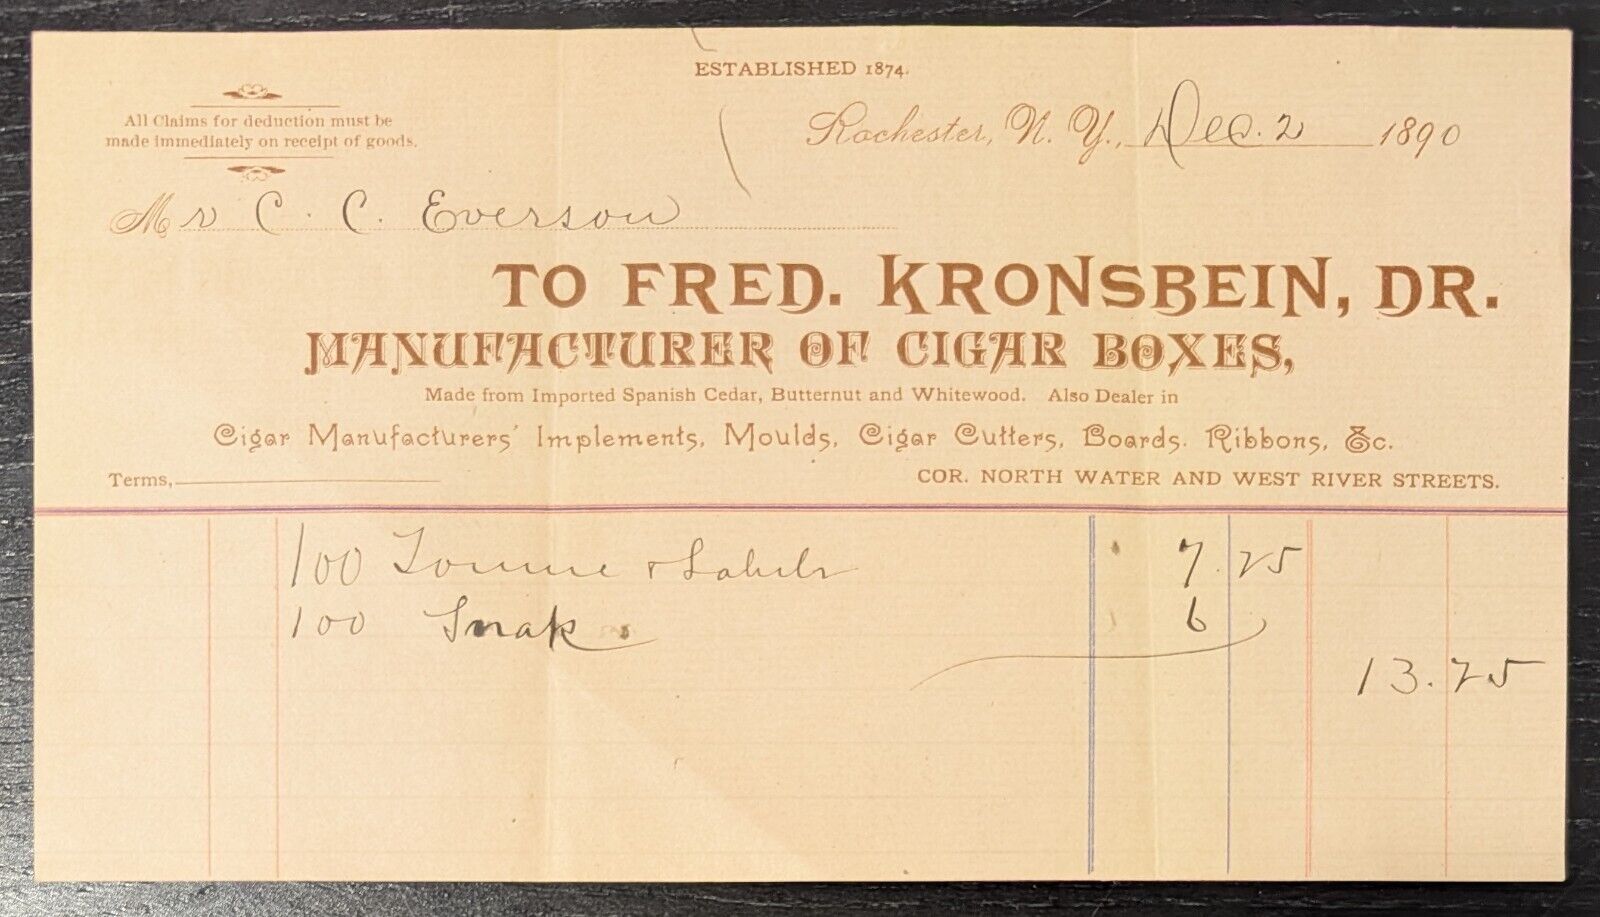 ESTABLISHED 1874.
All Claims for deduction must be
made immediately on receipt of goods.
Rochester, N. Y., Dec. 2 1890
Mr C. C. Everson
TO FRED. KRONSBEIN, DR.
MANUFACTURER OF CIGAR BOXES,
Made from Imported Spanish Cedar, Butternut and Whitewood. Also Dealer in
Cigar Manufacturers' Implements, Moulds, Cigar Cutters, Boards. Ribbons, &c.
Terms,
COR. NORTH WATER AND WEST RIVER STREETS.
100 & Labels 7.25
100 6
13.25